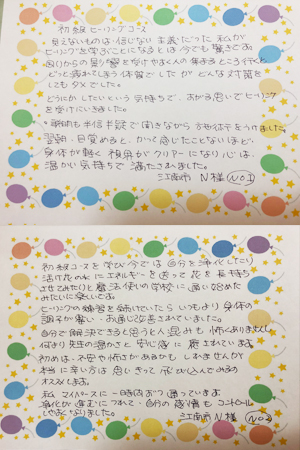 初級ヒーリングコース
見えないものは信じない主義だった私が
ヒーリングを学ぶことになるとは今でも驚きです。
周りからの影響を受けやすく人の集まるところ行くと
どっと疲れてしまう体質でしたがどんな対策を
してもダメでした。
どうにかしたいという気持ちで、すがる思いでヒーリング
を受けていきました。
説明も半信半疑で聞きながら施術をうけました。
翌朝、目覚めると、かつて感じたことないほど
身体が軽く視界がクリアーになり心は、
温かい気持ちで満たされました。
江南市 N様 (No1)
初級コースを学び今では自分を浄化したり
活け花の水にエネルギーを送って花を長持ち
させてみたりと魔法使いの学校に通い始めた
みたいに楽しいです。
ヒーリングの練習を続けていたらいつもより身体の
調子が良い、お通じ改善されていました。
自分で解決できると思うと人混みも怖くありません。
何より先生の温かさと安心感に癒されています。
初めは、不安や怖さがあるかもしれませんが
本当に辛い方は思いきって飛び込んでみるの
オススメします。
私、マイペースに一時間ずつ通っています。
浄化が進むにつれて、自分の感情もコントロール
しやすくなりました。
江南市 N様 (No2)